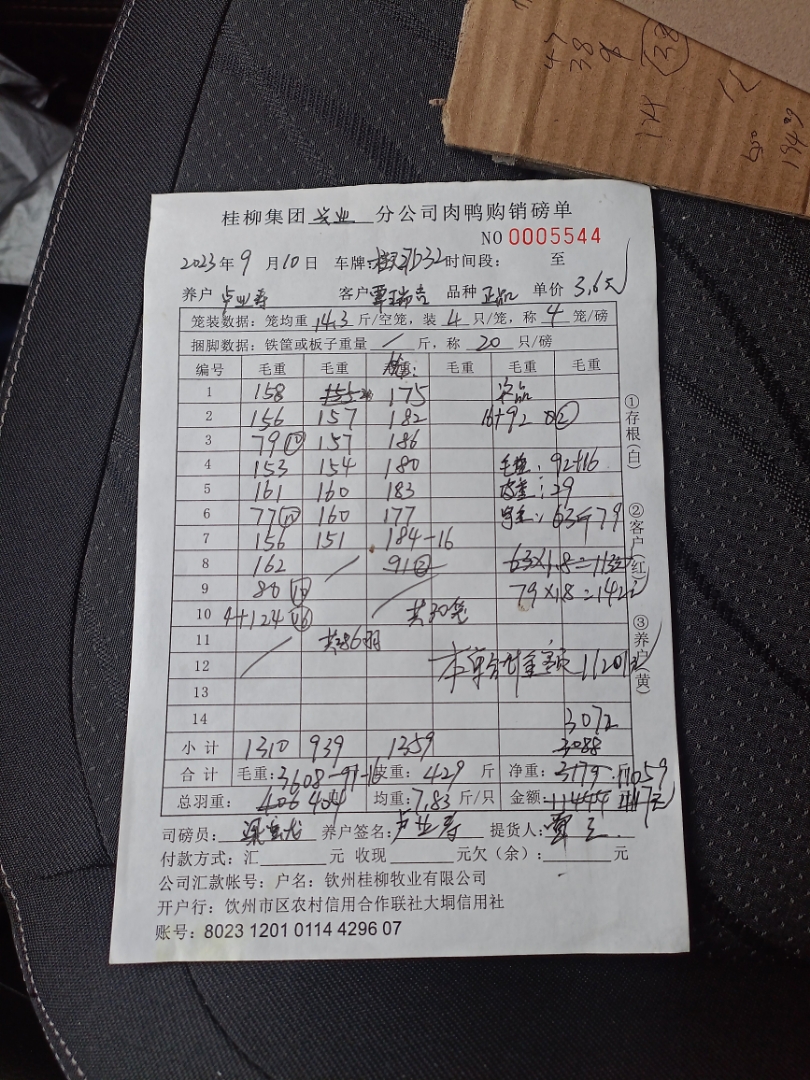 47
38
9
38
174
12
650
19409
桂柳集团 分公司肉鸭购销磅单
NO 0005544
2023年9月10日 车牌: D32 时间段: 至
养户 卢业寿 客户 覃瑞 品种 正品 单价 3.6元
笼装数据: 笼均重 14.3 斤/空笼, 装 4 只/笼, 称 4 笼/磅
捆脚数据: 铁筐或板子重量 / 斤, 称 20 只/磅
编号 毛重 毛重 毛重 毛重 毛重
1 158 175 次品
2 156 157 182 16+92 ②
3 79 157 186
4 153 154 180 毛重: 92+16
5 161 160 183 皮重: 29
6 77 160 177 63 79
7 156 151 184-16
8 162 91② 63×1.8=113元
9 80 79×1.8=142元
10 4+124 共30笼
11 共286羽
12 本单合计金额 11201元
13
14 3072
小计 1310 939 1359 3088
合计 毛重: 3608-91-16 皮重: 429 斤 净重: 3179 斤 11059
总羽重: 406 404 均重: 7.83 斤/只 金额: 11444 元
司磅员: 养户签名: 卢业寿 提货人: 覃
付款方式: 汇 元 收现 元欠(余): 元
公司汇款帐号: 户名: 钦州桂柳牧业有限公司
开户行: 钦州市区农村信用合作联社大垌信用社
账号: 8023 1201 0114 4296 07
①存根(白)
②客户(红)
③养户(黄)